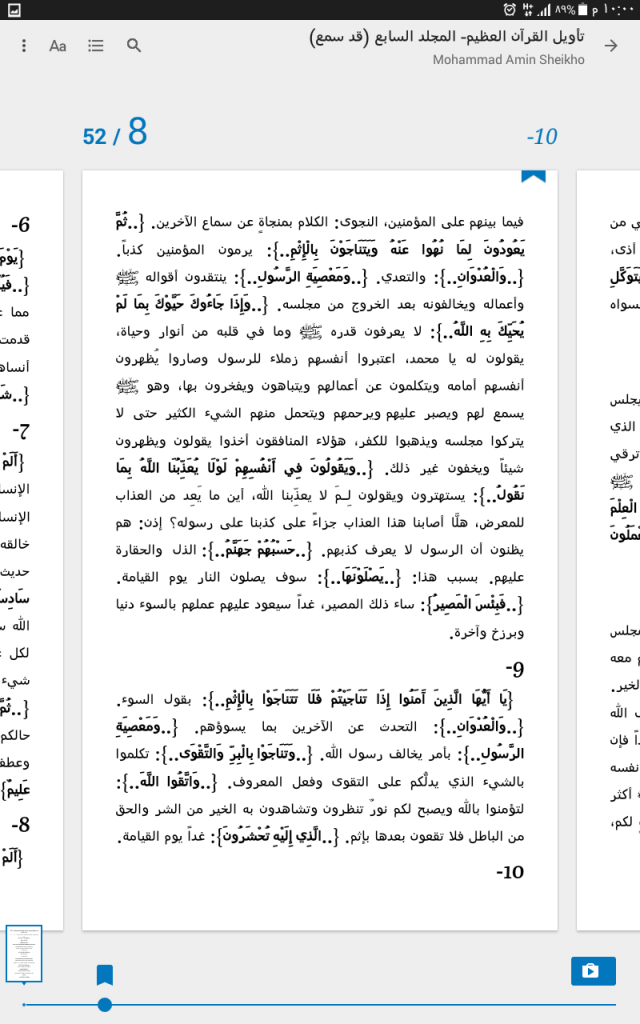 ١٠:٠٠ م ٨٩%
تأويل القرآن العظيم- المجلد السابع (قد سمع)
Mohammad Amin Sheikho
Aa
52 / 8
-10
فيما بينهم على المؤمنين، النجوى: الكلام بمنجاةٍ عن سماع الآخرين. {..ثُمَّ
يَعُودُونَ لِمَا نُهُوا عَنْهُ وَيَتَنَاجَوْنَ بِالْإِثْمِ..}: يرمون المؤمنين كذباً.
{..وَالْعُدْوَانِ..}: والتعدي. {..وَمَعْصِيَةِ الرَّسُولِ..}: ينتقدون أقواله ﷺ
وأعماله ويخالفونه بعد الخروج من مجلسه. {..وَإِذَا جَاءُوكَ حَيَّوْكَ بِمَا لَمْ
يُحَيِّكَ بِهِ اللَّهُ..}: لا يعرفون قدره ﷺ وما في قلبه من أنوار وحياة،
يقولون له يا محمد، اعتبروا أنفسهم زملاء للرسول وصاروا يُظهرون
أنفسهم أمامه ويتكلمون عن أعمالهم ويتباهون ويفخرون بها، وهو ﷺ
يسمع لهم ويصبر عليهم ويرحمهم ويتحمل منهم الشيء الكثير حتى لا
يتركوا مجلسه ويذهبوا للكفر، هؤلاء المنافقون أخذوا يقولون ويظهرون
شيئاً ويخفون غير ذلك. {..وَيَقُولُونَ فِي أَنْفُسِهِمْ لَوْلَا يُعَذِّبُنَا اللَّهُ بِمَا
نَقُولُ..}: يستهترون ويقولون لِـمَ لا يعذِّبنا الله، أين ما يَعِد من العذاب
للمعرض، هلَّا أصابنا هذا العذاب جزاءً على كذبنا على رسوله؟ إذن: هم
يظنون أن الرسول لا يعرف كذبهم. {..حَسْبُهُمْ جَهَنَّمُ..}: الذل والحقارة
عليهم. بسبب هذا: {..يَصْلَوْنَهَا..}: سوف يصلون النار يوم القيامة.
{..فَبِئْسَ الْمَصِيرُ}: ساء ذلك المصير، غداً سيعود عليهم عملهم بالسوء دنيا
وبرزخ وآخرة.
-9
{يَا أَيُّهَا الَّذِينَ آمَنُوا إِذَا تَنَاجَيْتُمْ فَلَا تَتَنَاجَوْا بِالْإِثْمِ..}: بقول السوء.
{..وَالْعُدْوَانِ..}: التحدث عن الآخرين بما يسوؤهم. {..وَمَعْصِيَةِ
الرَّسُولِ..}: بأمر يخالف رسول الله. {..وَتَنَاجَوْا بِالْبِرِّ وَالتَّقْوَى..}: تكلموا
بالشيء الذي يدلُّكم على التقوى وفعل المعروف. {..وَاتَّقُوا اللَّهَ..}:
لتؤمنوا بالله ويصبح لكم نورٌ تنظرون وتشاهدون به الخير من الشر والحق
من الباطل فلا تقعون بعدها بإثم. {..الَّذِي إِلَيْهِ تُحْشَرُونَ}: غداً يوم القيامة.
-10
-6
-7
-8